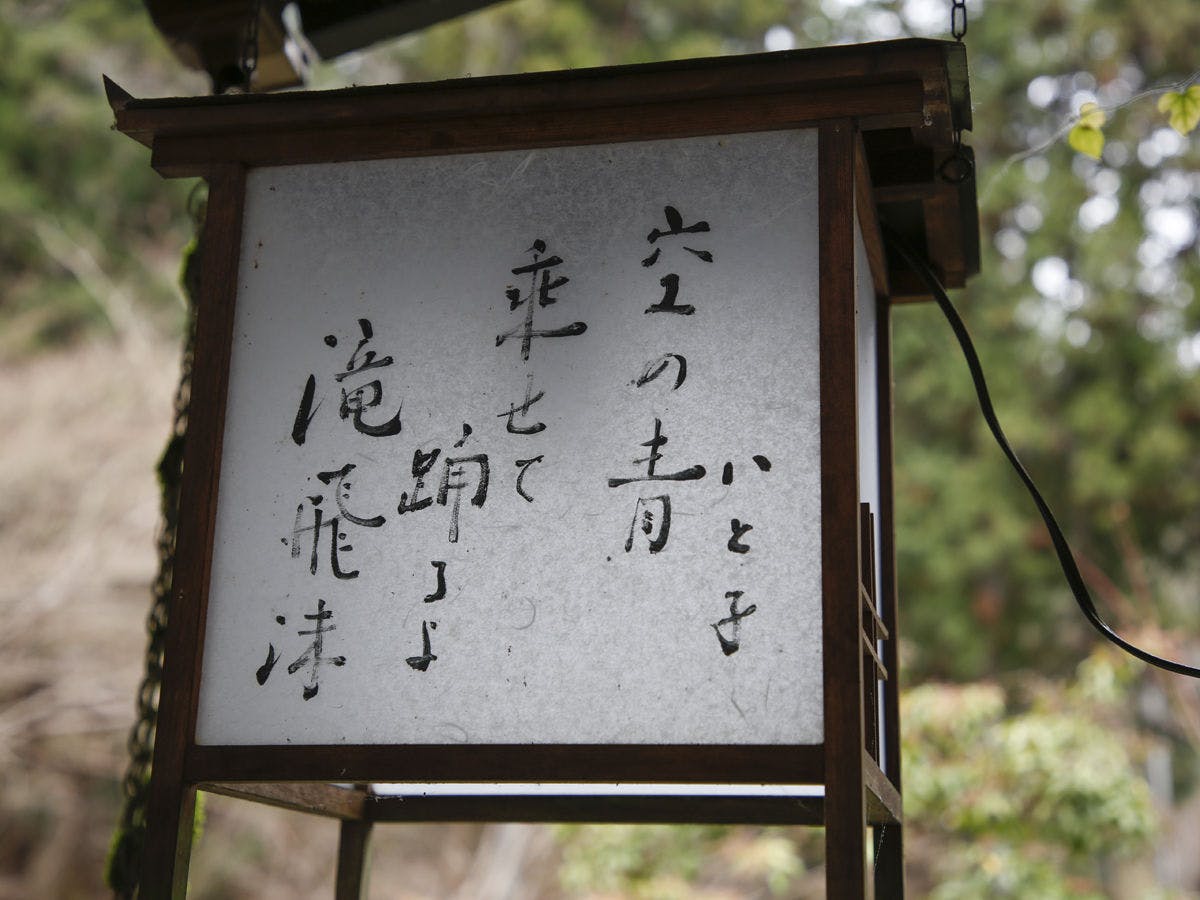 いと子
空の青
乗せて
踊るよ
滝飛沫